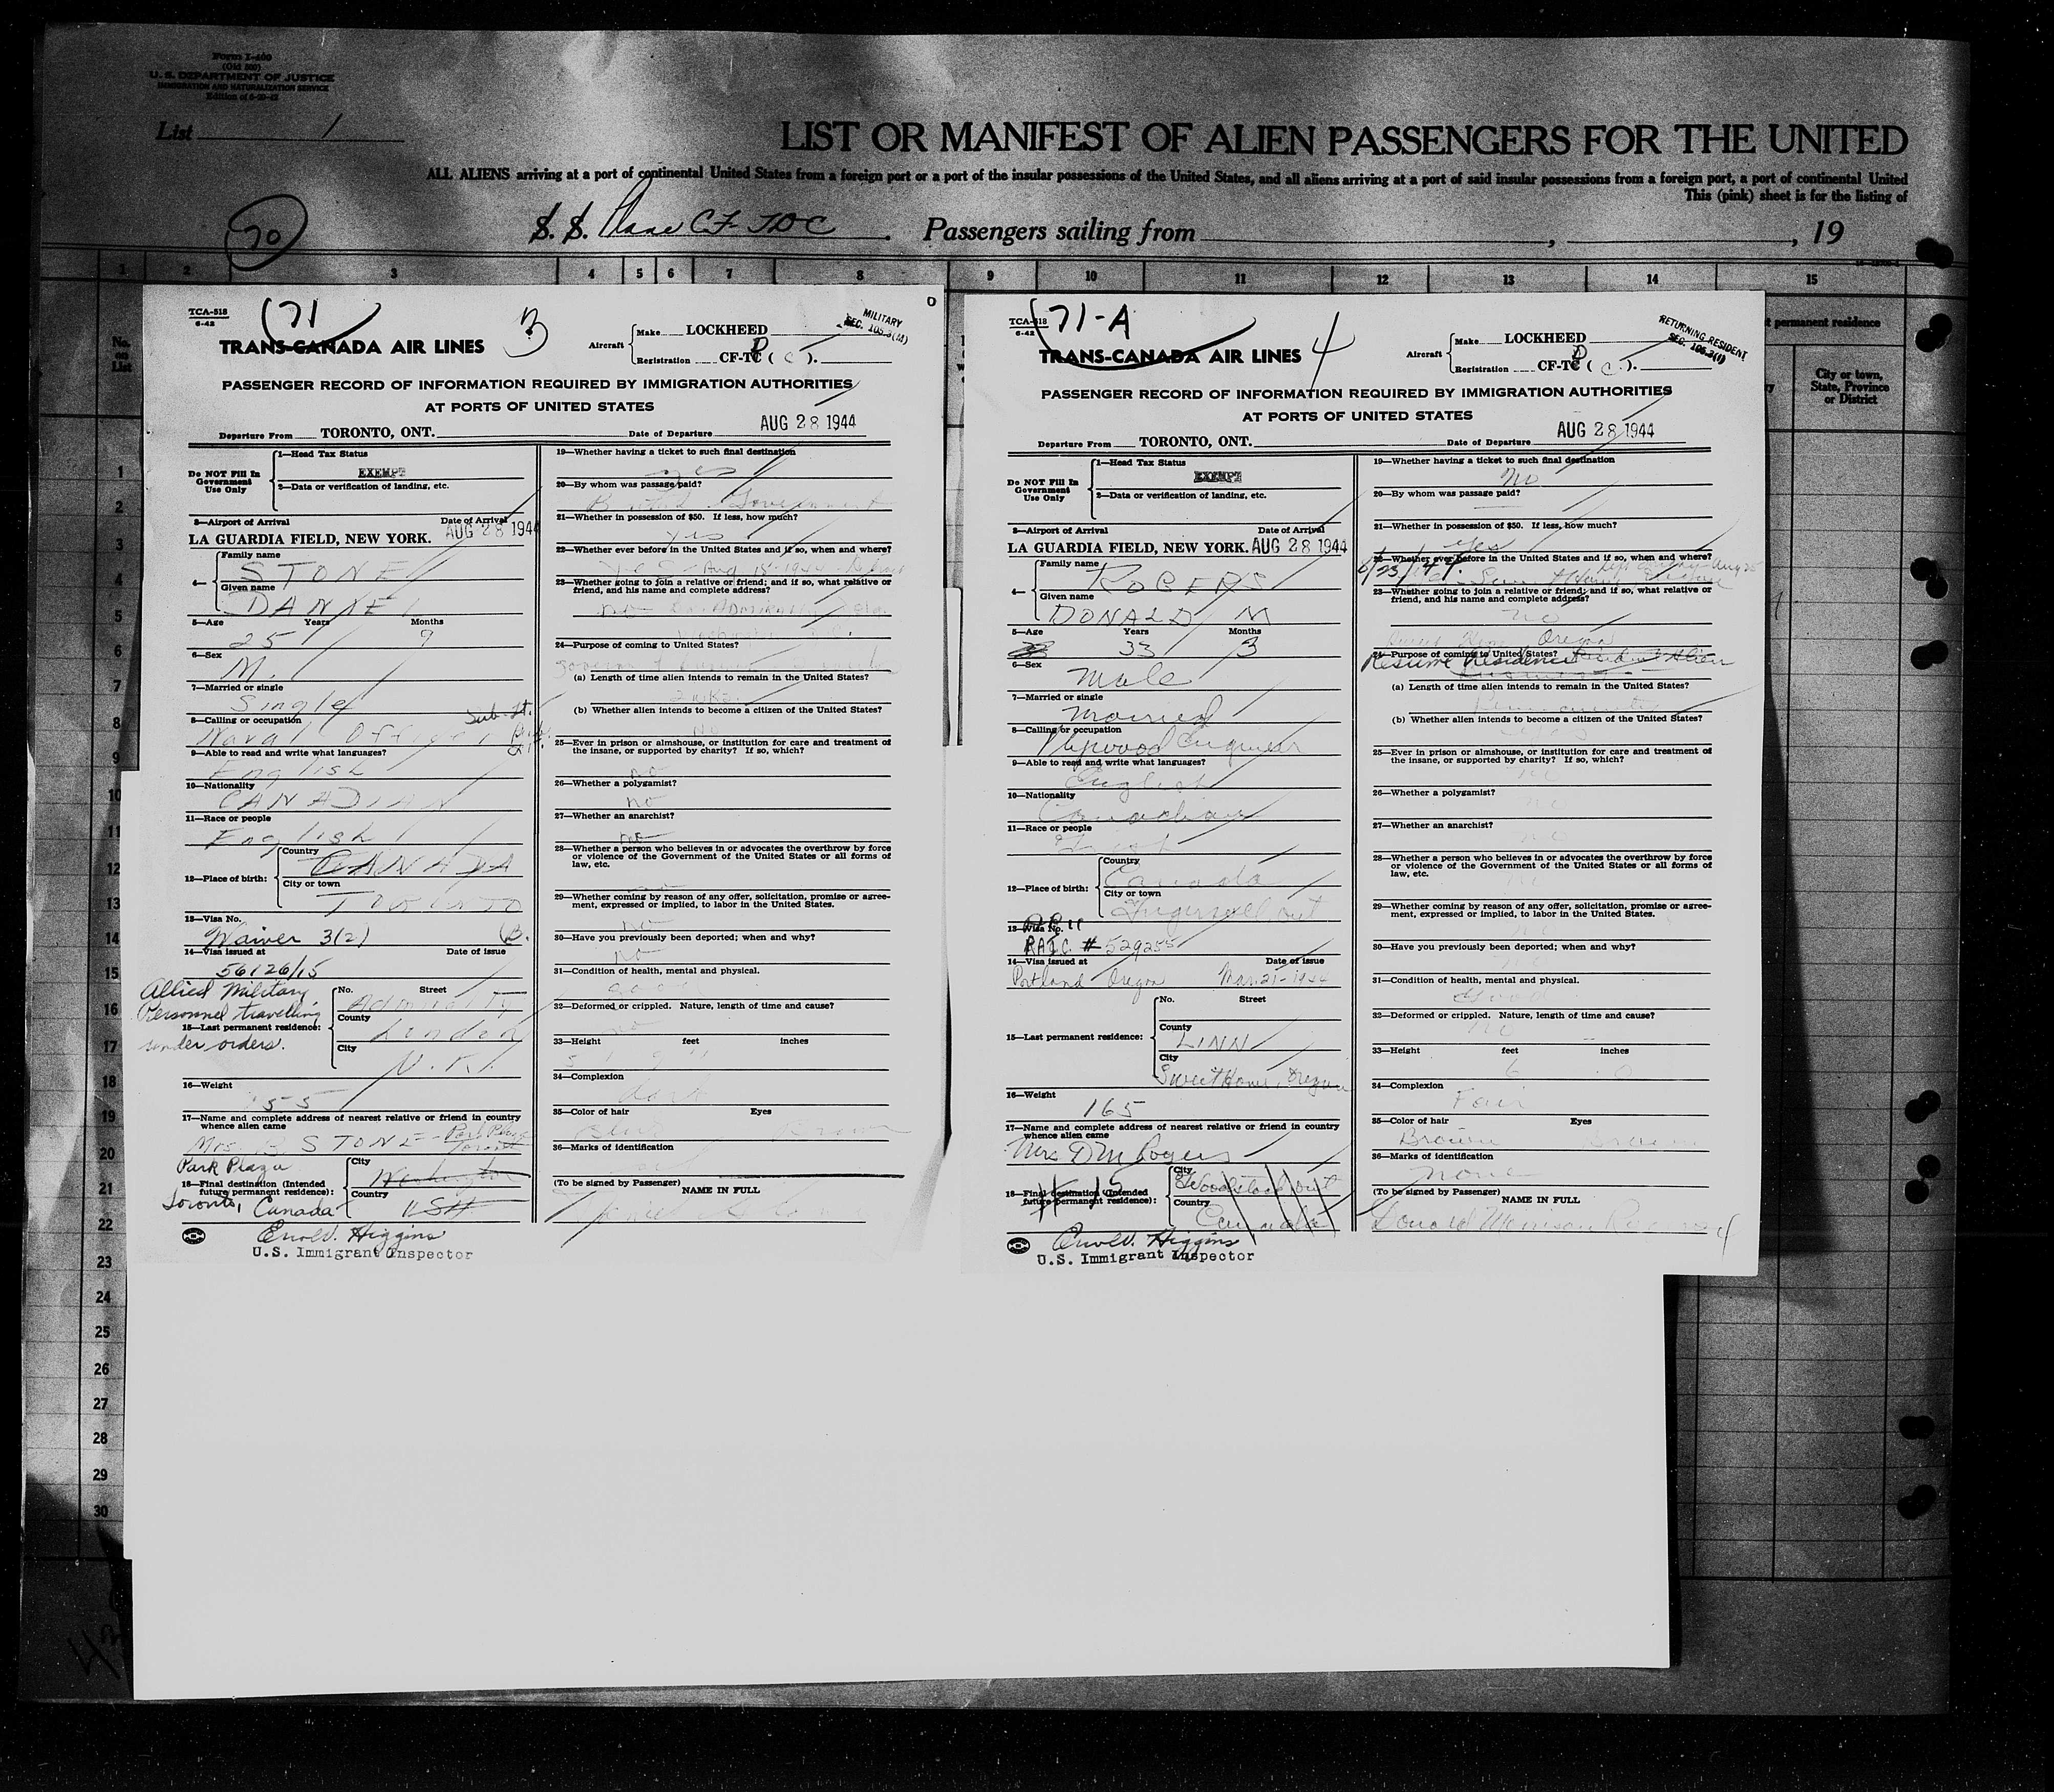 Form I-400
(Old 500)
U. S. DEPARTMENT OF JUSTICE
IMMIGRATION AND NATURALIZATION SERVICE
Edition of 6-20-42
List 1
LIST OR MANIFEST OF ALIEN PASSENGERS FOR THE UNITED
ALL ALIENS arriving at a port of continental United States from a foreign port or a port of the insular possessions of the United States, and all aliens arriving at a port of said insular possessions from a foreign port, a port of continental United
This (pink) sheet is for the listing of
70
S. S. Plane CF-TDC Passengers sailing from , , 19
1 2 3 4 5 6 7 8 9 10 11 12 13 14 15
No. on List
permanent residence
City or town, State, Province or District
1
2
3
4
5
6
7
8
9
10
11
12
13
14
15
16
17
18
19
20
21
22
23
24
25
26
27
28
29
30
TCA-518
6-42
71
3
MILITARY
SEC. 105.3(M)
TRANS-CANADA AIR LINES
Aircraft
Make LOCKHEED
Registration CF-TC D ( C ).
PASSENGER RECORD OF INFORMATION REQUIRED BY IMMIGRATION AUTHORITIES
AT PORTS OF UNITED STATES
Departure From TORONTO, ONT. Date of Departure AUG 28 1944
Do NOT Fill In
Government
Use Only
1—Head Tax Status
EXEMPT
2—Data or verification of landing, etc.
3—Airport of Arrival Date of Arrival
LA GUARDIA FIELD, NEW YORK. AUG 28 1944
4—
Family name
STONE
Given name
DANNEL
5—Age Years Months
25 9
6—Sex
M.
7—Married or single
Single
8—Calling or occupation
Naval Officer Sub. Lt.
9—Able to read and write what languages?
English
10—Nationality
CANADIAN
11—Race or people
English
12—Place of birth:
Country
CANADA
City or town
TORONTO
13—Visa No.
Waiver 3(2) B.
14—Visa issued at Date of issue
56126/15
Allied Military
Personnel travelling
under orders.
15—Last permanent residence:
No. Street
Admiralty
County
London
City
U.K.
16—Weight
155
17—Name and complete address of nearest relative or friend in country
whence alien came
Mrs. B. STONE - Park Plaza
Toronto
Park Plaza
18—Final destination (Intended
future permanent residence):
Toronto, Canada
City
Washington
Country
USA
U.S. Immigrant Inspector
19—Whether having a ticket to such final destination
yes
20—By whom was passage paid?
Government
21—Whether in possession of $50. If less, how much?
yes
22—Whether ever before in the United States and if so, when and where?
23—Whether going to join a relative or friend; and if so, what relative or
friend, and his name and complete address?
no
24—Purpose of coming to United States?
(a) Length of time alien intends to remain in the United States?
(b) Whether alien intends to become a citizen of the United States?
No
25—Ever in prison or almshouse, or institution for care and treatment of
the insane, or supported by charity? If so, which?
no
26—Whether a polygamist?
no
27—Whether an anarchist?
no
28—Whether a person who believes in or advocates the overthrow by force
or violence of the Government of the United States or all forms of
law, etc.
no
29—Whether coming by reason of any offer, solicitation, promise or agree-
ment, expressed or implied, to labor in the United States.
No
30—Have you previously been deported; when and why?
no
31—Condition of health, mental and physical.
good
32—Deformed or crippled. Nature, length of time and cause?
no
33—Height feet inches
5 9
34—Complexion
dark
35—Color of hair Eyes
Brown
36—Marks of identification
(To be signed by Passenger) NAME IN FULL
TCA-518
6-42
71-A
4
RETURNING RESIDENT
SEC. 105.3(I)
TRANS-CANADA AIR LINES
Aircraft
Make LOCKHEED
Registration CF-TC D ( C ).
PASSENGER RECORD OF INFORMATION REQUIRED BY IMMIGRATION AUTHORITIES
AT PORTS OF UNITED STATES
Departure From TORONTO, ONT. Date of Departure AUG 28 1944
Do NOT Fill In
Government
Use Only
1—Head Tax Status
EXEMPT
2—Data or verification of landing, etc.
3—Airport of Arrival Date of Arrival
LA GUARDIA FIELD, NEW YORK. AUG 28 1944
4—
Family name
ROGERS
Given name
DONALD M
5—Age Years Months
33 3
6—Sex
Male
7—Married or single
Married
8—Calling or occupation
Plywood Engineer
9—Able to read and write what languages?
English
10—Nationality
Canadian
11—Race or people
12—Place of birth:
Country
Canada
City or town
Ingersoll Ont
13—Visa No.
# 529255
14—Visa issued at Date of issue
Portland Oregon Mar-21-1944
15—Last permanent residence:
No. Street
County
LINN
City
Sweet Home, Oregon
16—Weight
165
17—Name and complete address of nearest relative or friend in country
whence alien came
Mrs D M Rogers
18—Final destination (Intended
future permanent residence):
City
Woodstock Ont
Country
Canada
U.S. Immigrant Inspector
19—Whether having a ticket to such final destination
No
20—By whom was passage paid?
21—Whether in possession of $50. If less, how much?
Yes
22—Whether ever before in the United States and if so, when and where?
23—Whether going to join a relative or friend; and if so, what relative or
friend, and his name and complete address?
no
Oregon
24—Purpose of coming to United States?
Resume Residence
(a) Length of time alien intends to remain in the United States?
(b) Whether alien intends to become a citizen of the United States?
25—Ever in prison or almshouse, or institution for care and treatment of
the insane, or supported by charity? If so, which?
no
26—Whether a polygamist?
no
27—Whether an anarchist?
no
28—Whether a person who believes in or advocates the overthrow by force
or violence of the Government of the United States or all forms of
law, etc.
29—Whether coming by reason of any offer, solicitation, promise or agree-
ment, expressed or implied, to labor in the United States.
30—Have you previously been deported; when and why?
31—Condition of health, mental and physical.
Good
32—Deformed or crippled. Nature, length of time and cause?
no
33—Height feet inches
6 0
34—Complexion
Fair
35—Color of hair Eyes
Brown
36—Marks of identification
none
(To be signed by Passenger) NAME IN FULL
Donald Morrison Rogers